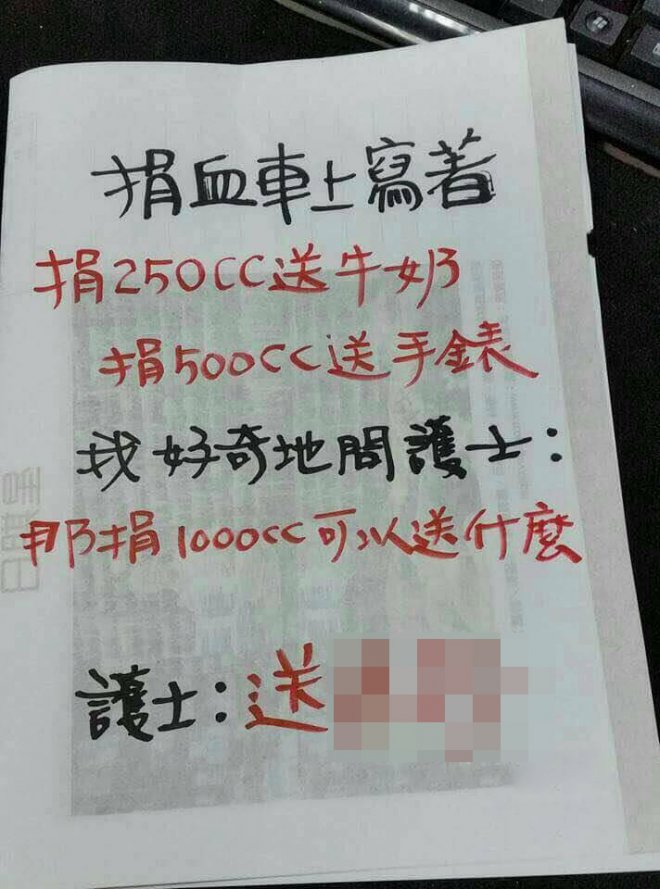 捐血車上寫著
捐250CC送牛奶
捐500CC送手錶
我好奇地問護士：
那捐1000cc可以送什麼
護士：送